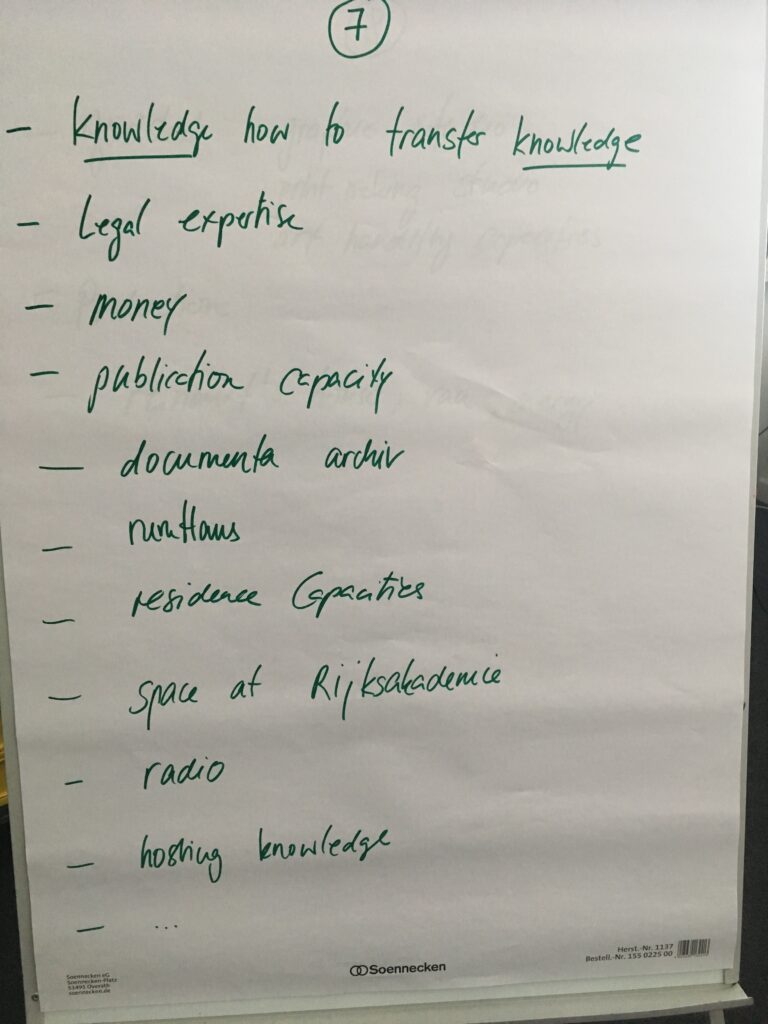 7
- knowledge how to transfer knowledge
- Legal expertise
- money
- publication capacity
- documenta archiv
- ruruHaus
- residence Capacities
- space at Rijksakademie
- radio
- hosting knowledge
- ...
Soennecken eG
Soennecken-Platz
51491 Overath
soennecken.de
Soennecken
Herst.-Nr. 1137
Bestell.-Nr. 155 0225 00